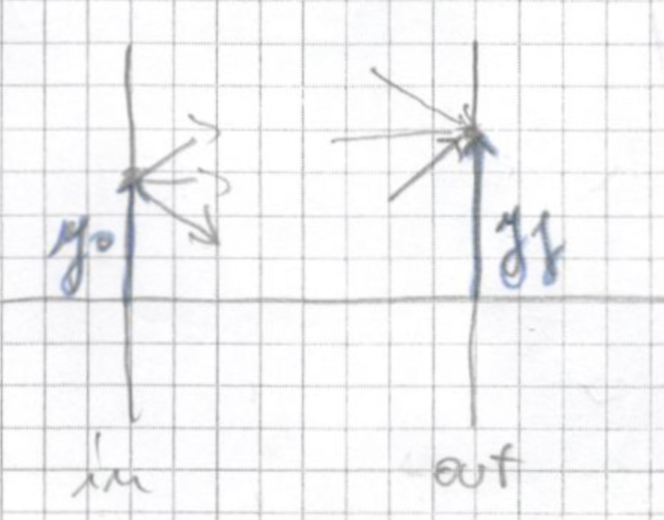 y₀ yf
in out